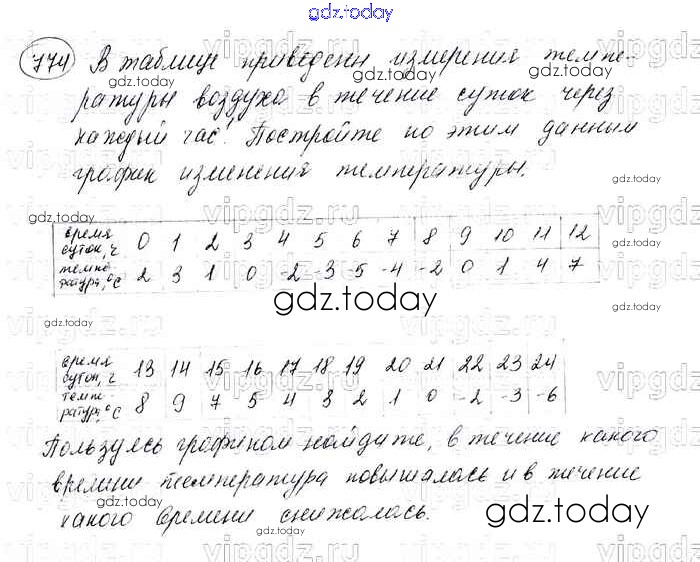 gdz.today
774 В таблице приведены измерения темпе-
ратуры воздуха в течение суток через
каждый час. Постройте по этим данным
график изменения температуры.
время суток, ч 0 1 2 3 4 5 6 7 8 9 10 11 12
темпе-ратура, °С 2 3 1 0 -2 -3 -5 -4 -2 0 1 4 7
gdz.today
время суток, ч 13 14 15 16 17 18 19 20 21 22 23 24
темпе-ратура, °С 8 9 7 5 4 3 2 1 0 -2 -3 -6
Пользуясь графиком найдите, в течение какого
времени температура повышалась и в течение
какого времени снижалась.
gdz.today